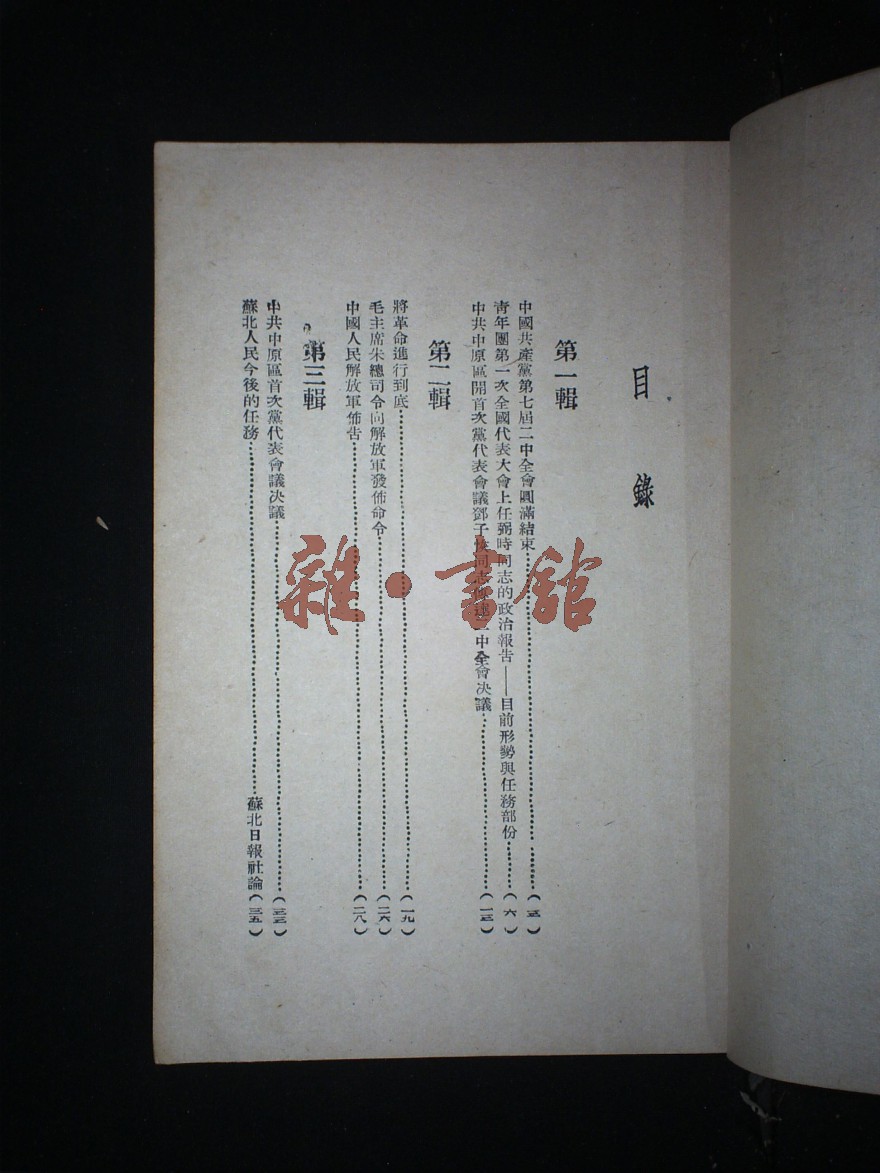 目錄
第一輯
中國共產黨第七屆二中全會圓滿結束………
青年團第一次全國代表大會上任弼時同志的政治報告——目前形勢與任務部份………(六)
中共中原區開首次黨代表會議鄧子恢同志傳達二中全會決議………(一三)
第二輯
將革命進行到底………(一九)
毛主席朱總司令向解放軍發佈命令………(二六)
中國人民解放軍佈告………(二八)
第三輯
中共中原區首次黨代表會議决議………(三三)
蘇北人民今後的任務………蘇北日報社論(三五)
雜·書舘